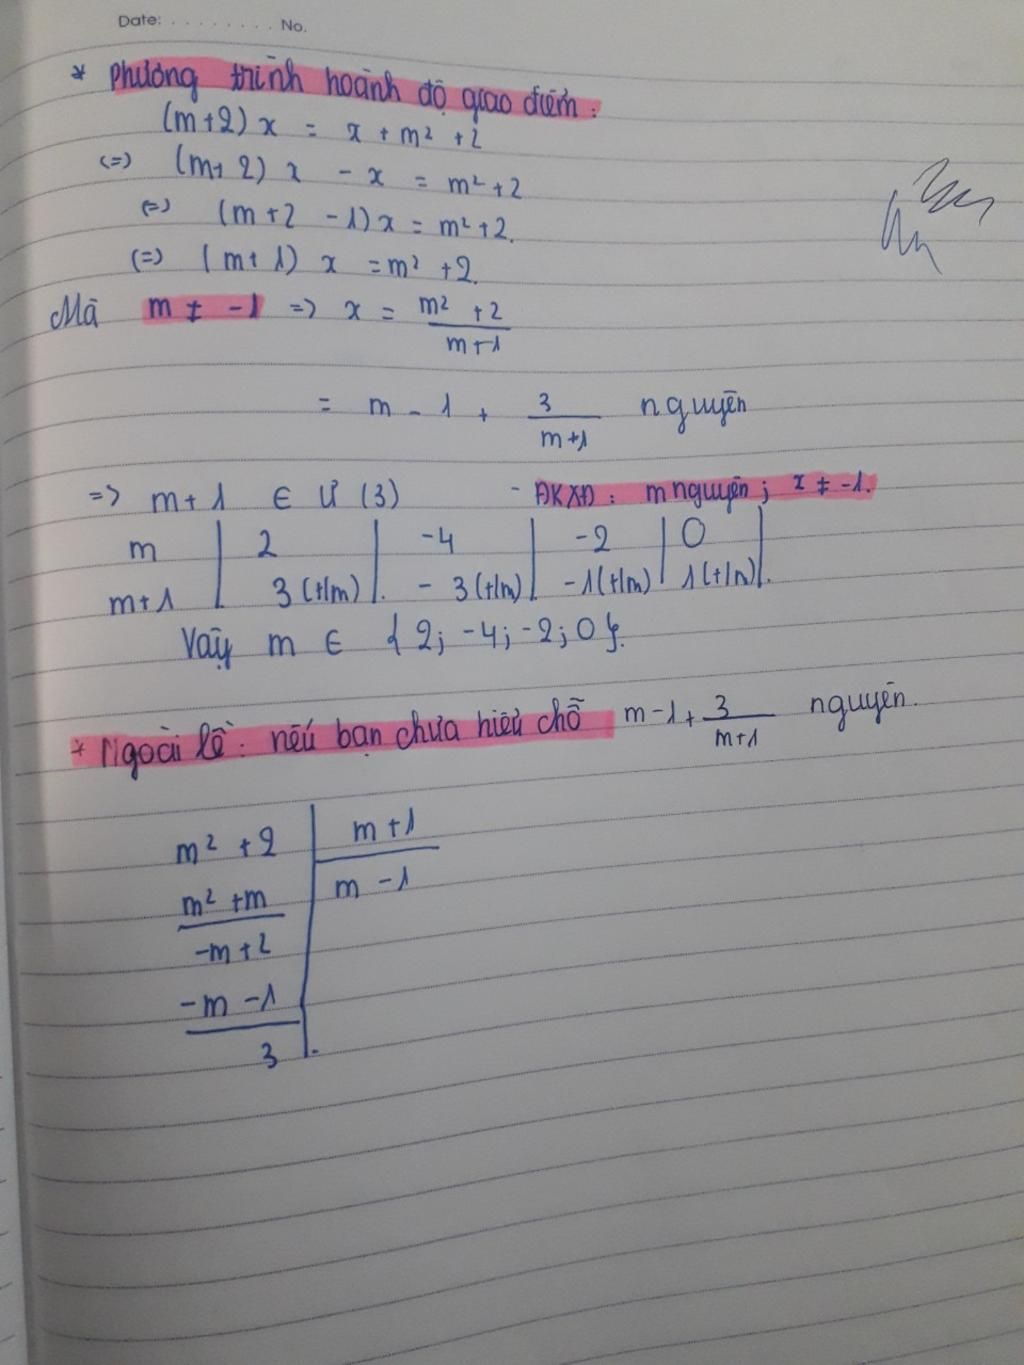 Date: . . . . . . . . No.
* Phương trình hoành độ giao điểm:
(m+2) x = x + m² + 2
(=) (m+2) x - x = m² + 2
(=) (m+2 - 1) x = m² + 2.
(=) (m+1) x = m² + 2.
Mà m ≠ -1 => x = m² + 2 / m+1
= m - 1 + 3 / m+1 nguyên
=> m+1 ∈ Ư (3) - ĐKXĐ: m nguyên; x ≠ -1.
m | 2 | -4 | -2 | 0 |
m+1 | 3 (t/m) | -3 (t/m) | -1 (t/m) | 1 (t/m) |.
Vậy m ∈ {2; -4; -2; 0}.
* Ngoài lề: nếu bạn chưa hiểu chỗ m-1 + 3 / m+1 nguyên.
m² + 2 | m+1
m² + m | m - 1
-m + 2
-m - 1
3